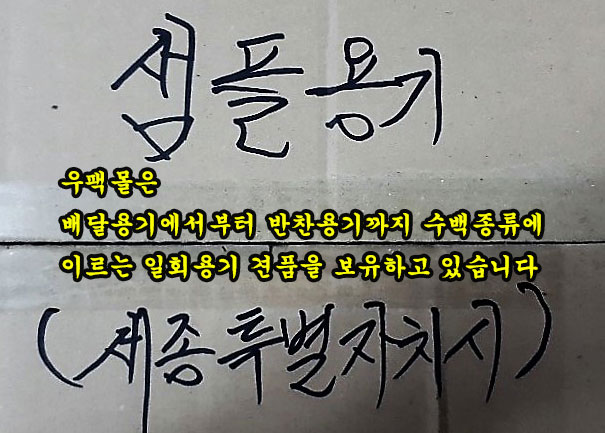 샘플용기
우팩몰은
배달용기에서부터 반찬용기까지 수백종류에
이르는 일회용기 견품을 보유하고 있습니다
(세종특별자치시)